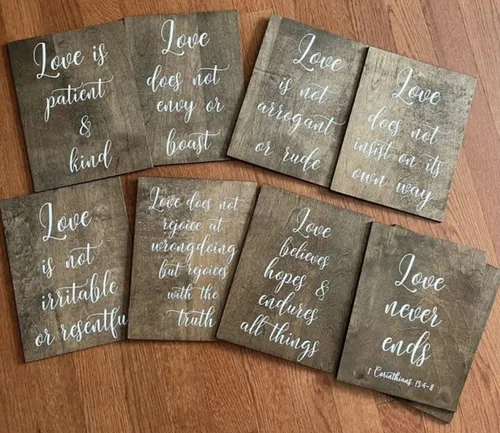 Love is
patient
&
kind
Love
does not
envy or
boast
Love
is not
arrogant
or rude
Love
does not
insist on its
own way
Love
is not
irritable
or resentfu
Love does not
rejoice at
wrongdoing
but rejoices
with the
truth
Love
believes
hopes &
endures
all things
Love
never
ends
1 Corinthians 13:4-8